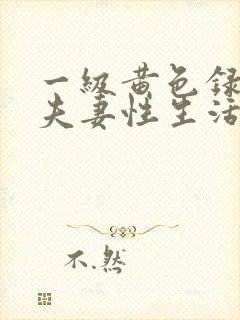 一級黄色録
夫妻性生活
不.然